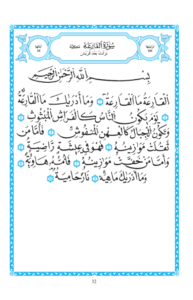 سُورَةُ القَارِعَةِ مَكِّيَّة
بِسْمِ ٱللَّهِ ٱلرَّحْمَٰنِ ٱلرَّحِيمِ
ٱلْقَارِعَةُ مَا ٱلْقَارِعَةُ وَمَآ أَدْرَىٰكَ مَا ٱلْقَارِعَةُ
يَوْمَ يَكُونُ ٱلنَّاسُ كَٱلْفَرَاشِ ٱلْمَبْثُوثِ
وَتَكُونُ ٱلْجِبَالُ كَٱلْعِهْنِ ٱلْمَنفُوشِ فَأَمَّا مَن
ثَقُلَتْ مَوَٰزِينُهُۥ فَهُوَ فِى عِيشَةٍ رَّاضِيَةٍ
وَأَمَّا مَنْ خَفَّتْ مَوَٰزِينُهُۥ فَأُمُّهُۥ هَاوِيَةٌ
وَمَآ أَدْرَىٰكَ مَا هِيَهْ نَارٌ حَامِيَةٌۢ
32